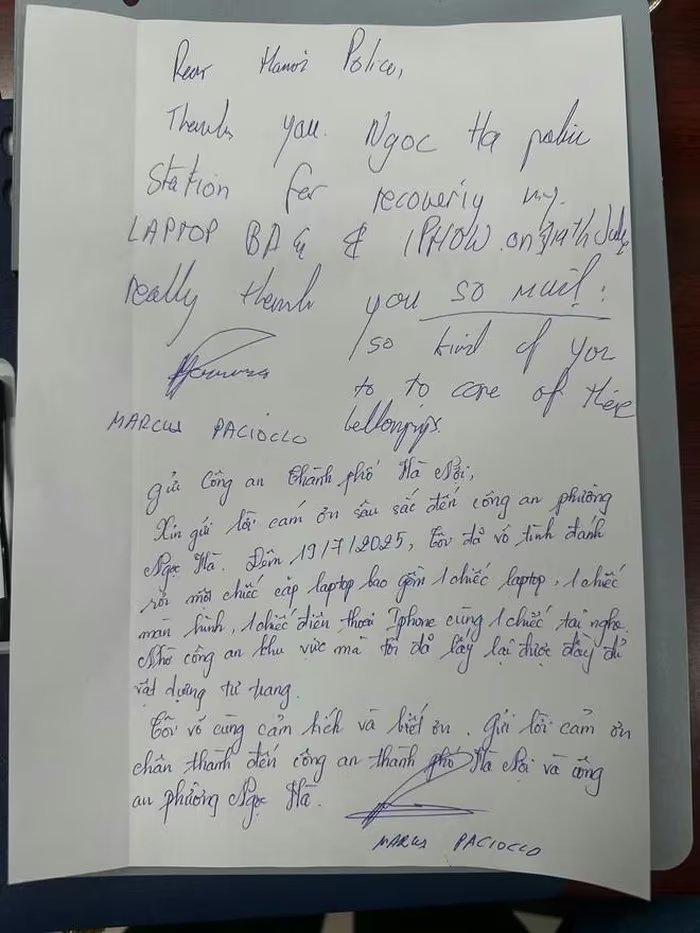 Dear Hanoi Police,
Thank you. Ngoc Ha police
Station for recoveriy my
LAPTOP BAG & IPHON on 19th July
really thank you so much!
so kind of you
to to care of there
bellongngs.
MARCUS PACIOCCO
Gửi Công an thành phố Hà Nội,
Xin gửi lời cám ơn sâu sắc đến công an phường
Ngọc Hà. Đêm 19/7/2025, tôi đã vô tình đánh
rơi một chiếc cặp laptop bao gồm 1 chiếc laptop, 1 chiếc
màn hình, 1 chiếc điện thoại Iphone cùng 1 chiếc tai nghe.
Nhờ công an khu vực mà tôi đã lấy lại được đầy đủ
vật dụng tư trang.
Tôi vô cùng cảm kích và biết ơn. Gửi lời cảm ơn
chân thành đến công an thành phố Hà Nội và công
an phường Ngọc Hà.
MARCUS PACIOCCO